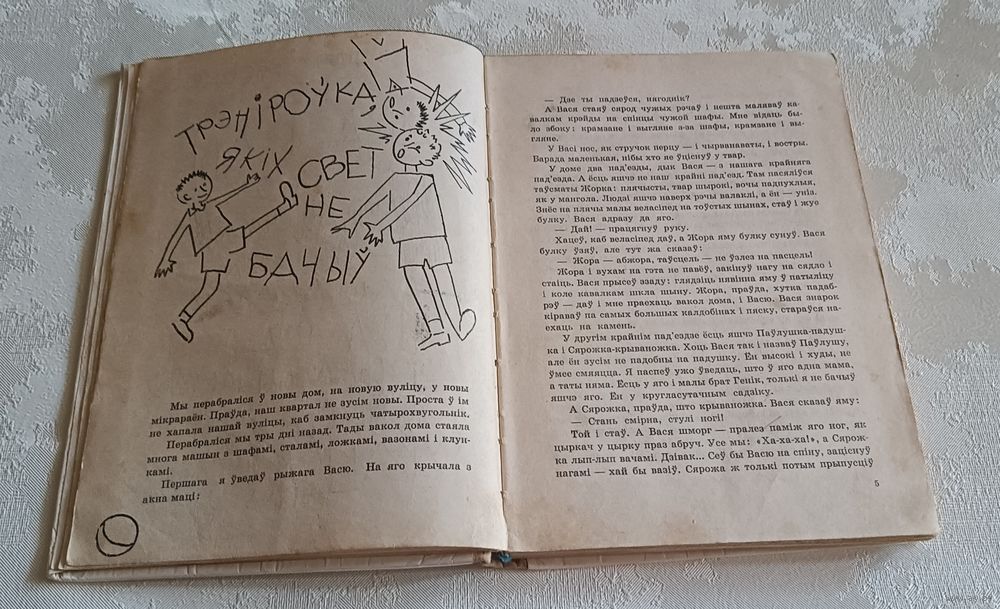 ТРЭНІРОЎКА,
ЯКІХ
СВЕТ
НЕ
БАЧЫЎ
Мы перабраліся ў новы дом, на новую вуліцу, у новы
мікрараён. Праўда, наш квартал не зусім новы. Проста ў ім
не хапала нашай вуліцы, каб замкнуць чатырохвугольнік.
Перабраліся мы тры дні назад. Тады вакол дома стаяла
многа машын з шафамі, сталамі, ложкамі, вазонамі і клун-
камі.
Першага я ўведаў рыжага Васю. На яго крычала з
акна маці:
— Дзе ты падзеўся, нягоднік?
А Вася стаяў сярод чужых рэчаў і нешта маляваў ка-
валкам крэйды на спінцы чужой шафы. Мне відаць бы-
ло збоку: крамзане і выгляне з-за шафы, крамзане і вы-
гляне.
У Васі нос, як стручок перцу — і чырванаваты, і востры.
Барада маленькая, нібы хто яе ўціснуў у твар.
У доме два пад'езды, дык Вася — з нашага крайняга
пад'езда. А ёсць яшчэ не наш крайні пад'езд. Там пасяліўся
таўсматы Жорка: плячысты, твар шырокі, вочы падпухлыя,
як у мангола. Людзі яшчэ наверх рэчы валаклі, а ён — уніз.
Знёс на плячы малы веласіпед на тоўстых шынах, стаў і жуе
булку. Вася адразу да яго.
— Дай! — працягнуў руку.
Хацеў, каб веласіпед даў, а Жора яму булку сунуў. Вася
булку ўзяў, але тут жа сказаў:
— Жора — абжора, таўсцель — не ўзлез на пасцель!
Жора і вухам на гэта не павёў, закінуў нагу на сядло і
стаіць. Вася прысеў ззаду: глядзіць нявінна яму ў патыліцу
і коле кавалкам шкла шыну. Жора, праўда, хутка падаб-
рэў — даў і мне праехаць вакол дома, і Васю. Вася знарок
кіраваў па самых большых калдобінах і пяску, стараўся на-
ехаць на камень.
У другім крайнім пад'ездзе ёсць яшчэ Паўлушка-падуш-
ка і Сярожка-крываножка. Хоць Вася так і назваў Паўлушу,
але ён зусім не падобны на падушку. Ён высокі і худы, не
ўмее смяяцца. Я паспеў ужо ўведаць, што ў яго адна мама,
а таты няма. Ёсць у яго і малы брат Генік, толькі я не бачыў
яшчэ яго. Ён у кругласутачным садзіку.
А Сярожка, праўда, што крываножка. Вася сказаў яму:
— Стань смірна, стулі ногі!
Той і стаў. А Вася шморг — пралез паміж яго ног, як
цыркач у цырку праз абруч. Усе мы: «Ха-ха-ха!», а Сярож-
ка лып-лып вачамі. Дзівак... Сеў бы Васю на спіну, заціснуў
нагамі — хай бы вазіў. Сярожа ж толькі потым прыпусціў
5